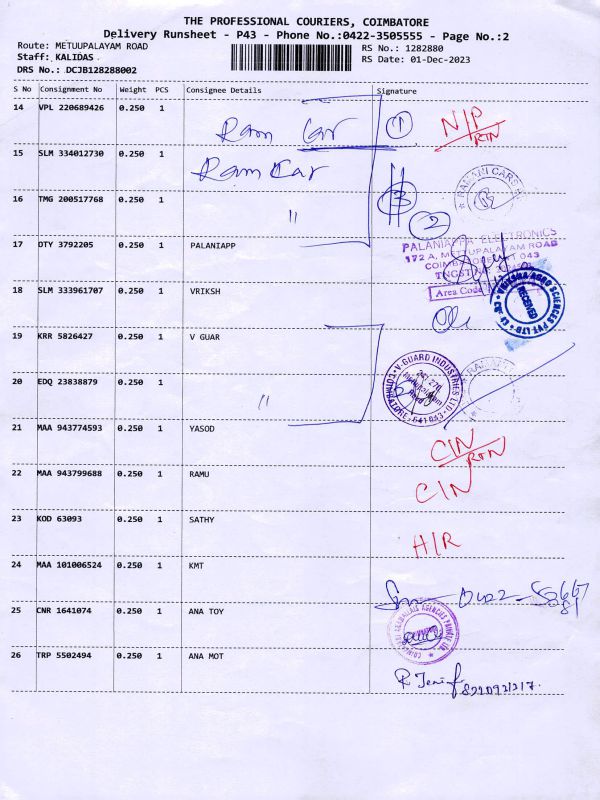 THE PROFESSIONAL COURIERS, COIMBATORE
Delivery Runsheet - P43 - Phone No.:0422-3505555 - Page No.:2
Route: METUUPALAYAM ROAD
RS No.: 1282880
Staff: KALIDAS
RS Date: 01-Dec-2023
DRS No.: DCJB128288002
S No Consignment No Weight PCS Consignee Details Signature
14 VPL 220689426 0.250 1 Ram Car 1 N/P RTN
15 SLM 334012730 0.250 1 Ram Car
16 TMG 200517768 0.250 1 " 3 2 RAMANI CARS
17 DTY 3792205 0.250 1 PALANIAPP
PALANIAPPA ELECTRONICS
172 A, METTUPALAYAM ROAD
COIMBATORE 641 043
TNGST
Area Code
18 SLM 333961707 0.250 1 VRIKSH
RECEIVED
19 KRR 5826427 0.250 1 V GUAR
V-GUARD INDUSTRIES LTD
COIMBATORE - 641 043
RAMANI
20 EDQ 23838879 0.250 1 "
21 MAA 943774593 0.250 1 YASOD C/N RTN
22 MAA 943799688 0.250 1 RAMU C/N
23 KOD 63093 0.250 1 SATHY H/R
24 MAA 101006524 0.250 1 KMT
25 CNR 1641074 0.250 1 ANA TOY
26 TRP 5502494 0.250 1 ANA MOT